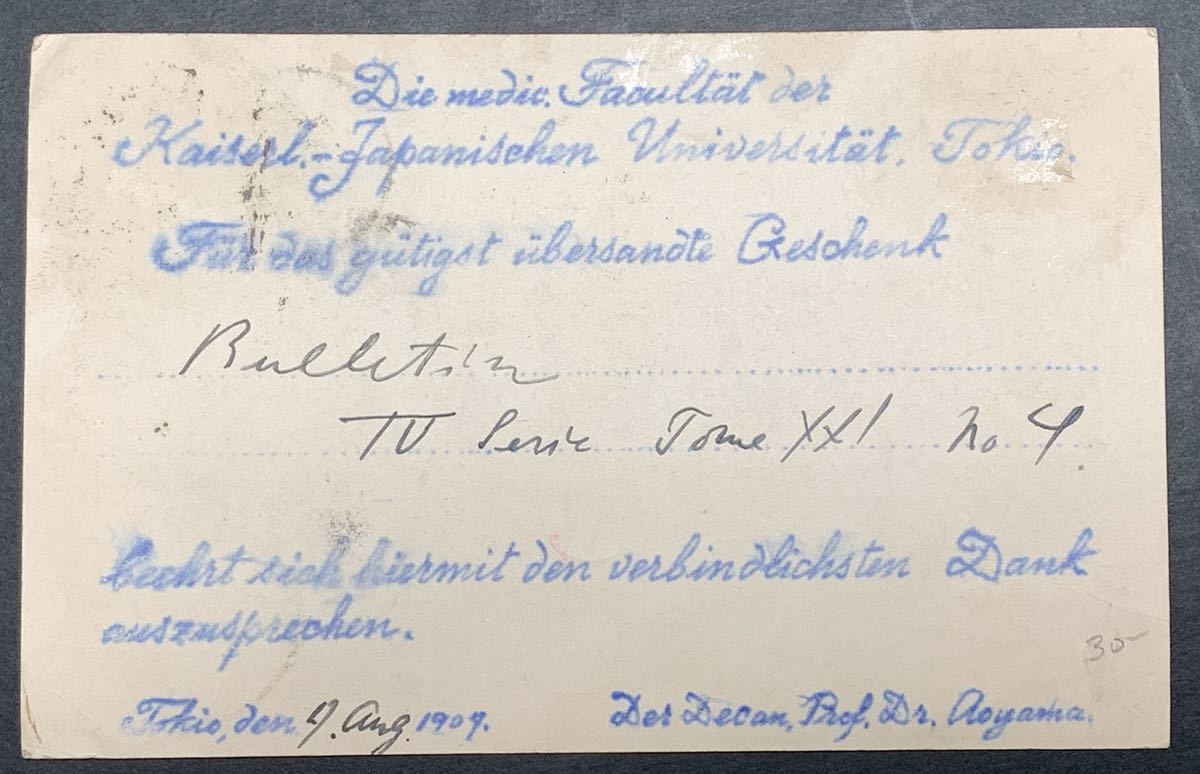 Die medic. Facultät der
Kaiserl.-Japanischen Universität. Tokio.
Für das gütigst übersandte Geschenk
Bulletin
IV Serie Tome XXI No 4.
beehrt sich hiermit den verbindlichsten Dank
auszusprechen.
30-
Tokio, den Aug. 1907.
Der Decan, Prof. Dr. Aoyama.